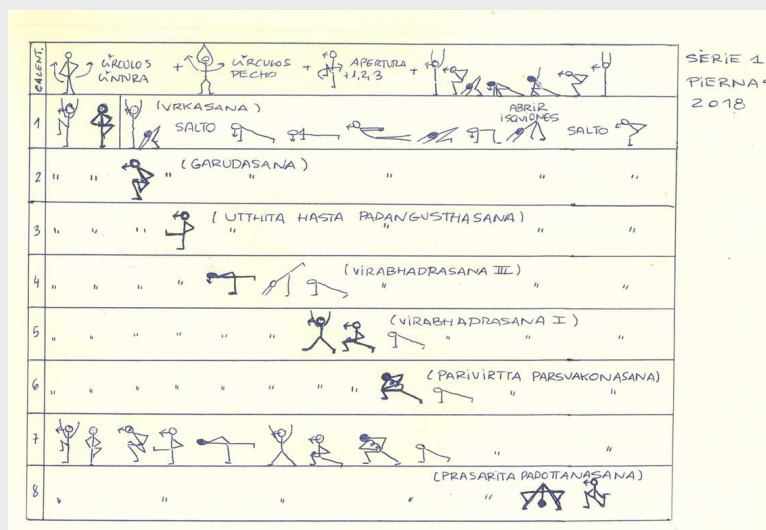 CALENT.
CÍRCULOS CINTURA + CÍRCULOS PECHO + APERTURA +1,2,3 +
SERIE 1
PIERNAS
2018
1 (VRKASANA) SALTO ABRIR ISQUIONES SALTO
2 " " (GARUDASANA) " " " " "
3 " " " (UTTHITA HASTA PADANGUSTHASANA) " " " "
4 " " " " (VIRABHADRASANA III) " " "
5 " " " " " " (VIRABHADRASANA I) " " "
6 " " " " " " " " (PARIVIRTTA PARSVAKONASANA) " "
7 " "
8 " " " " " (PRASARITA PADOTTANASANA)